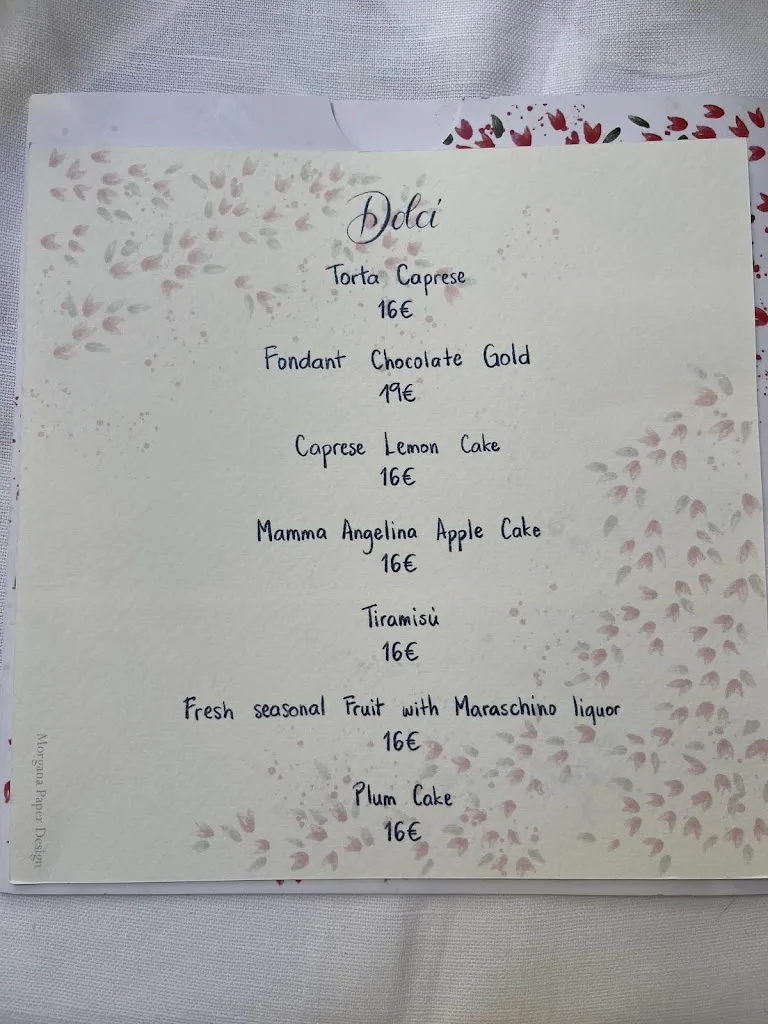 Dolci
Torta Caprese
16€
Fondant Chocolate Gold
19€
Caprese Lemon Cake
16€
Mamma Angelina Apple Cake
16€
Tiramisù
16€
Fresh seasonal Fruit with Maraschino liquor
16€
Plum Cake
16€
Morgana Paper Design